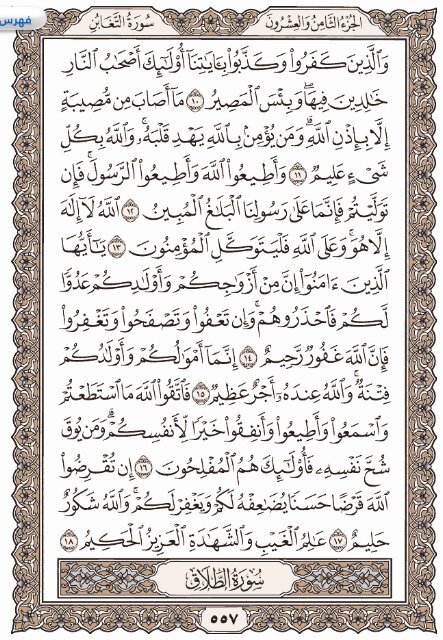 فهرس
سُورَةُ التَّغَابُنِ
الجُزءُ الثَّامِنُ وَالعِشْرُون
وَالَّذِينَ كَفَرُوا۟ وَكَذَّبُوا۟ بِـَٔايَـٰتِنَآ أُو۟لَـٰٓئِكَ أَصْحَـٰبُ النَّارِ
خَـٰلِدِينَ فِيهَا ۖ وَبِئْسَ الْمَصِيرُ ١٠ مَآ أَصَابَ مِن مُّصِيبَةٍ
إِلَّا بِإِذْنِ اللَّهِ ۗ وَمَن يُؤْمِنۢ بِاللَّهِ يَهْدِ قَلْبَهُۥ ۚ وَاللَّهُ بِكُلِّ
شَىْءٍ عَلِيمٌ ١١ وَأَطِيعُوا۟ اللَّهَ وَأَطِيعُوا۟ الرَّسُولَ ۚ فَإِن
تَوَلَّيْتُمْ فَإِنَّمَا عَلَىٰ رَسُولِنَا الْبَلَـٰغُ الْمُبِينُ ١٢ اللَّهُ لَآ إِلَـٰهَ
إِلَّا هُوَ ۚ وَعَلَى اللَّهِ فَلْيَتَوَكَّلِ الْمُؤْمِنُونَ ١٣ يَـٰٓأَيُّهَا
الَّذِينَ ءَامَنُوٓا۟ إِنَّ مِنْ أَزْوَٰجِكُمْ وَأَوْلَـٰدِكُمْ عَدُوًّا
لَّكُمْ فَاحْذَرُوهُمْ ۚ وَإِن تَعْفُوا۟ وَتَصْفَحُوا۟ وَتَغْفِرُوا۟
فَإِنَّ اللَّهَ غَفُورٌ رَّحِيمٌ ١٤ إِنَّمَآ أَمْوَٰلُكُمْ وَأَوْلَـٰدُكُمْ
فِتْنَةٌ ۚ وَاللَّهُ عِندَهُۥٓ أَجْرٌ عَظِيمٌ ١٥ فَاتَّقُوا۟ اللَّهَ مَا اسْتَطَعْتُمْ
وَاسْمَعُوا۟ وَأَطِيعُوا۟ وَأَنفِقُوا۟ خَيْرًا لِّأَنفُسِكُمْ ۗ وَمَن يُوقَ
شُحَّ نَفْسِهِۦ فَأُو۟لَـٰٓئِكَ هُمُ الْمُفْلِحُونَ ١٦ إِن تُقْرِضُوا۟
اللَّهَ قَرْضًا حَسَنًا يُضَـٰعِفْهُ لَكُمْ وَيَغْفِرْ لَكُمْ ۚ وَاللَّهُ شَكُورٌ
حَلِيمٌ ١٧ عَـٰلِمُ الْغَيْبِ وَالشَّهَـٰدَةِ الْعَزِيزُ الْحَكِيمُ ١٨
سُورَةُ الطَّلَاقِ
٥٥٧